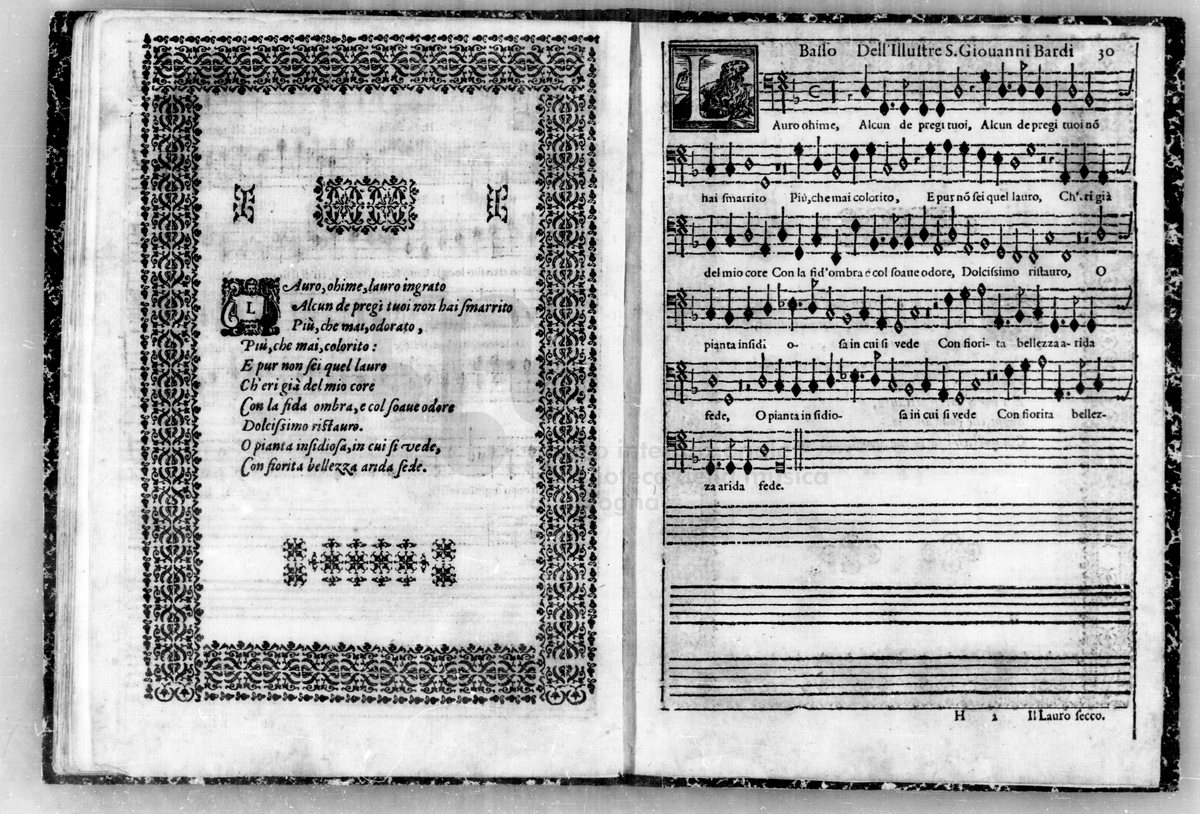 LAuro, ohime, lauro ingrato
Alcun de pregi tuoi non hai smarrito
Più, che mai, odorato,
Più, che mai, colorito:
E pur non sei quel lauro
Ch'eri già del mio core
Con la fida ombra, e col soaue odore
Dolcissimo ristauro.
O pianta insidiosa, in cui si vede,
Con fiorita bellezza arida fede.
Basso Dell'Illustre S. Giouanni Bardi 30
LAuro ohime, Alcun de pregi tuoi, Alcun de pregi tuoi nõ
hai smarrito Più, che mai colorito, E pur nõ sei quel lauro, Ch'eri già
del mio core Con la fid'ombra e col soaue odore, Dolcissimo ristauro, O
pianta insidi o- sa in cui si vede Con fiori- ta bellezza a- rida
fede, O pianta in sidio- sa in cui si vede Con fiorita bellez-
za arida fede.
H 2 Il Lauro secco.